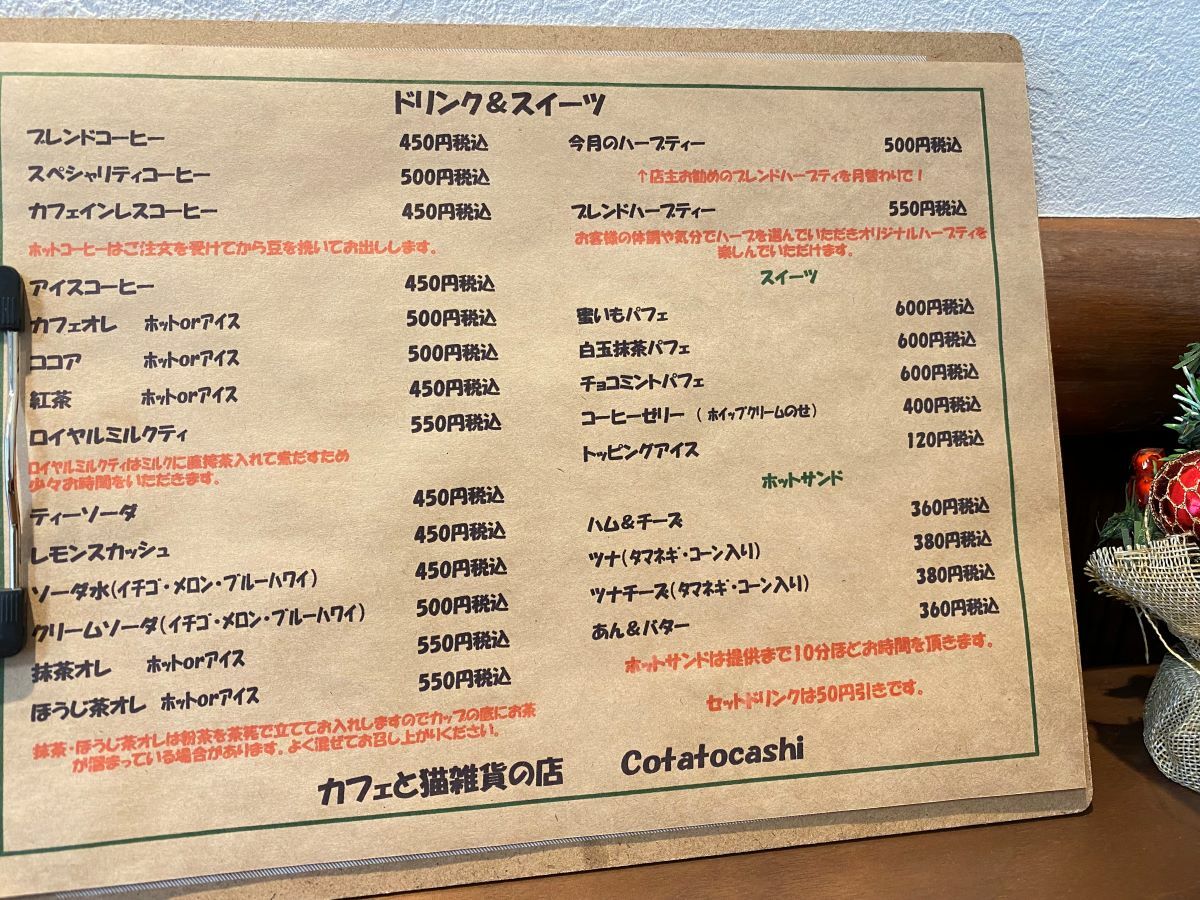 ドリンク＆スイーツ
ブレンドコーヒー 450円税込
スペシャリティコーヒー 500円税込
カフェインレスコーヒー 450円税込
ホットコーヒーはご注文を受けてから豆を挽いてお出しします。
アイスコーヒー 450円税込
カフェオレ ホットorアイス 500円税込
ココア ホットorアイス 500円税込
紅茶 ホットorアイス 450円税込
ロイヤルミルクティ 550円税込
ロイヤルミルクティはミルクに直接茶入れて煮だすため
少々お時間をいただきます。
ティーソーダ 450円税込
レモンスカッシュ 450円税込
ソーダ水（イチゴ・メロン・ブルーハワイ） 450円税込
クリームソーダ（イチゴ・メロン・ブルーハワイ） 500円税込
抹茶オレ ホットorアイス 550円税込
ほうじ茶オレ ホットorアイス 550円税込
抹茶・ほうじ茶オレは粉茶を茶筅で立ててお入れしますのでカップの底にお茶
が溜まっている場合があります。よく混ぜてお召し上がりください。
今月のハーブティー 500円税込
↑店主お勧めのブレンドハーブティを月替わりで！
ブレンドハーブティー 550円税込
お客様の体調や気分でハーブを選んでいただきオリジナルハーブティを
楽しんでいただけます。
スイーツ
蜜いもパフェ 600円税込
白玉抹茶パフェ 600円税込
チョコミントパフェ 600円税込
コーヒーゼリー（ホイップクリームのせ） 400円税込
トッピングアイス 120円税込
ホットサンド
ハム＆チーズ 360円税込
ツナ（タマネギ・コーン入り） 380円税込
ツナチーズ（タマネギ・コーン入り） 380円税込
あん＆バター 360円税込
ホットサンドは提供まで10分ほどお時間を頂きます。
セットドリンクは50円引きです。
カフェと猫雑貨の店 Cotatocashi